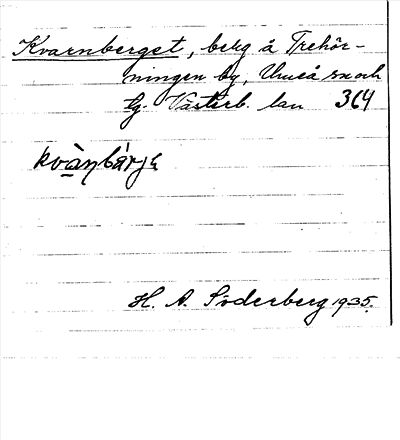 Kvarnberget, belg å Trehör-
ningen by, Umeå sn och
tg. Västerb. län 364
kvànbárjɛ
H. A. Söderberg 1935.